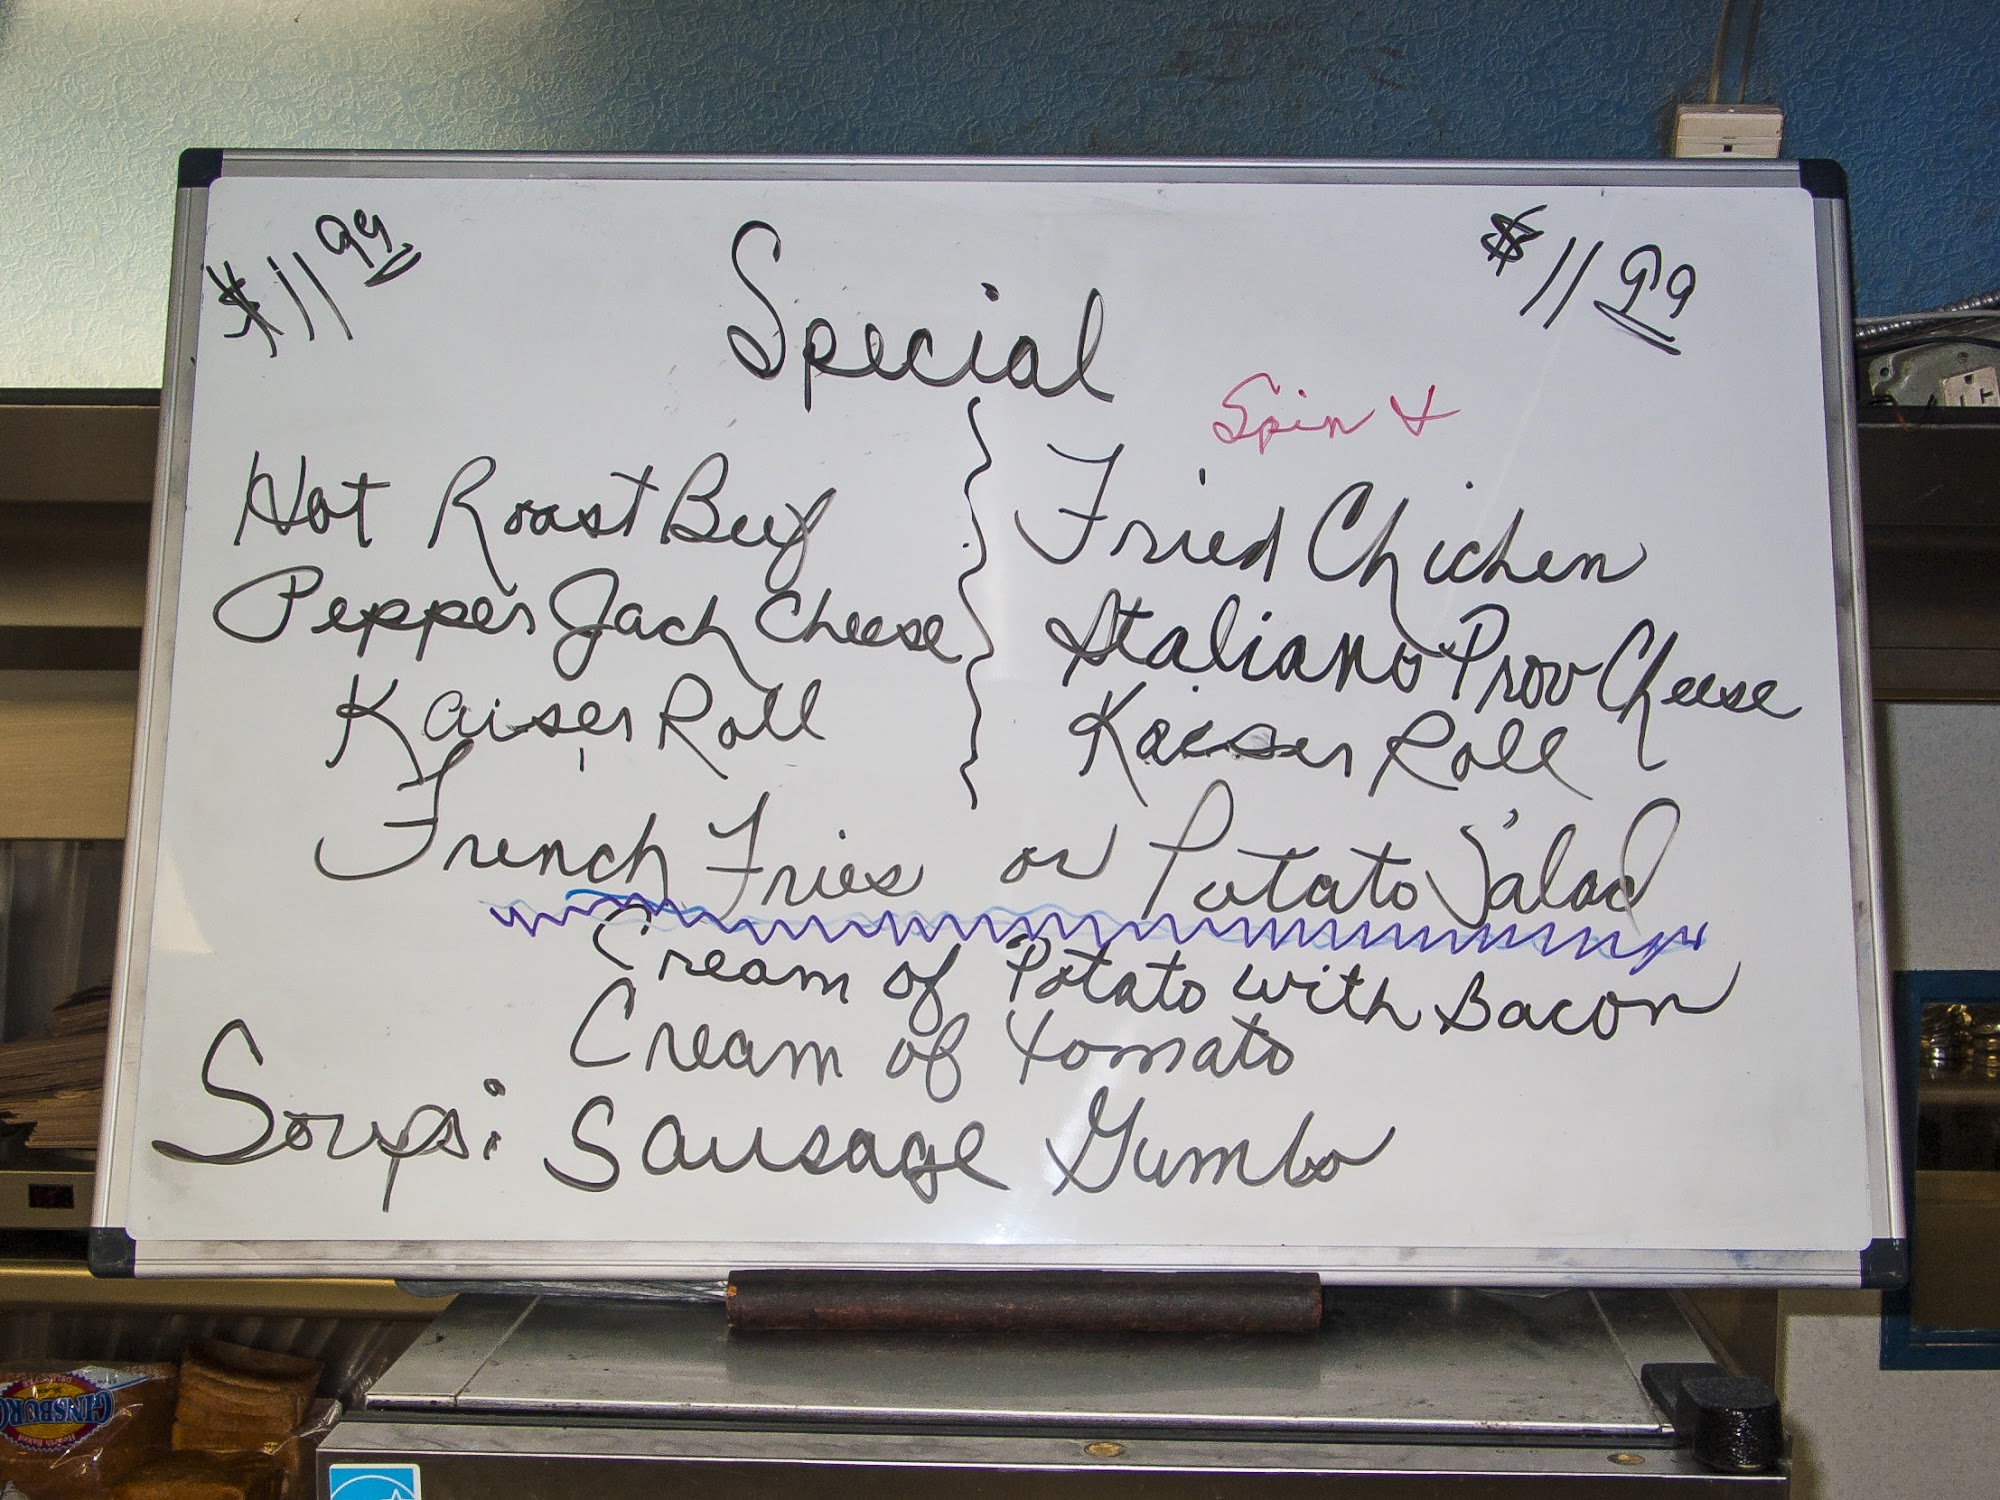 $11.99
Special
$11.99
Hot Roast Beef
Pepper Jack Cheese
Kaiser Roll
Spin +
Fried Chicken
Italiano Prov Cheese
Kaiser Roll
French Fries or Potato Salad
Cream of Potato with Bacon
Cream of Tomato
Soups: Sausage Gumbo
GINSBURG
Hearth Baked